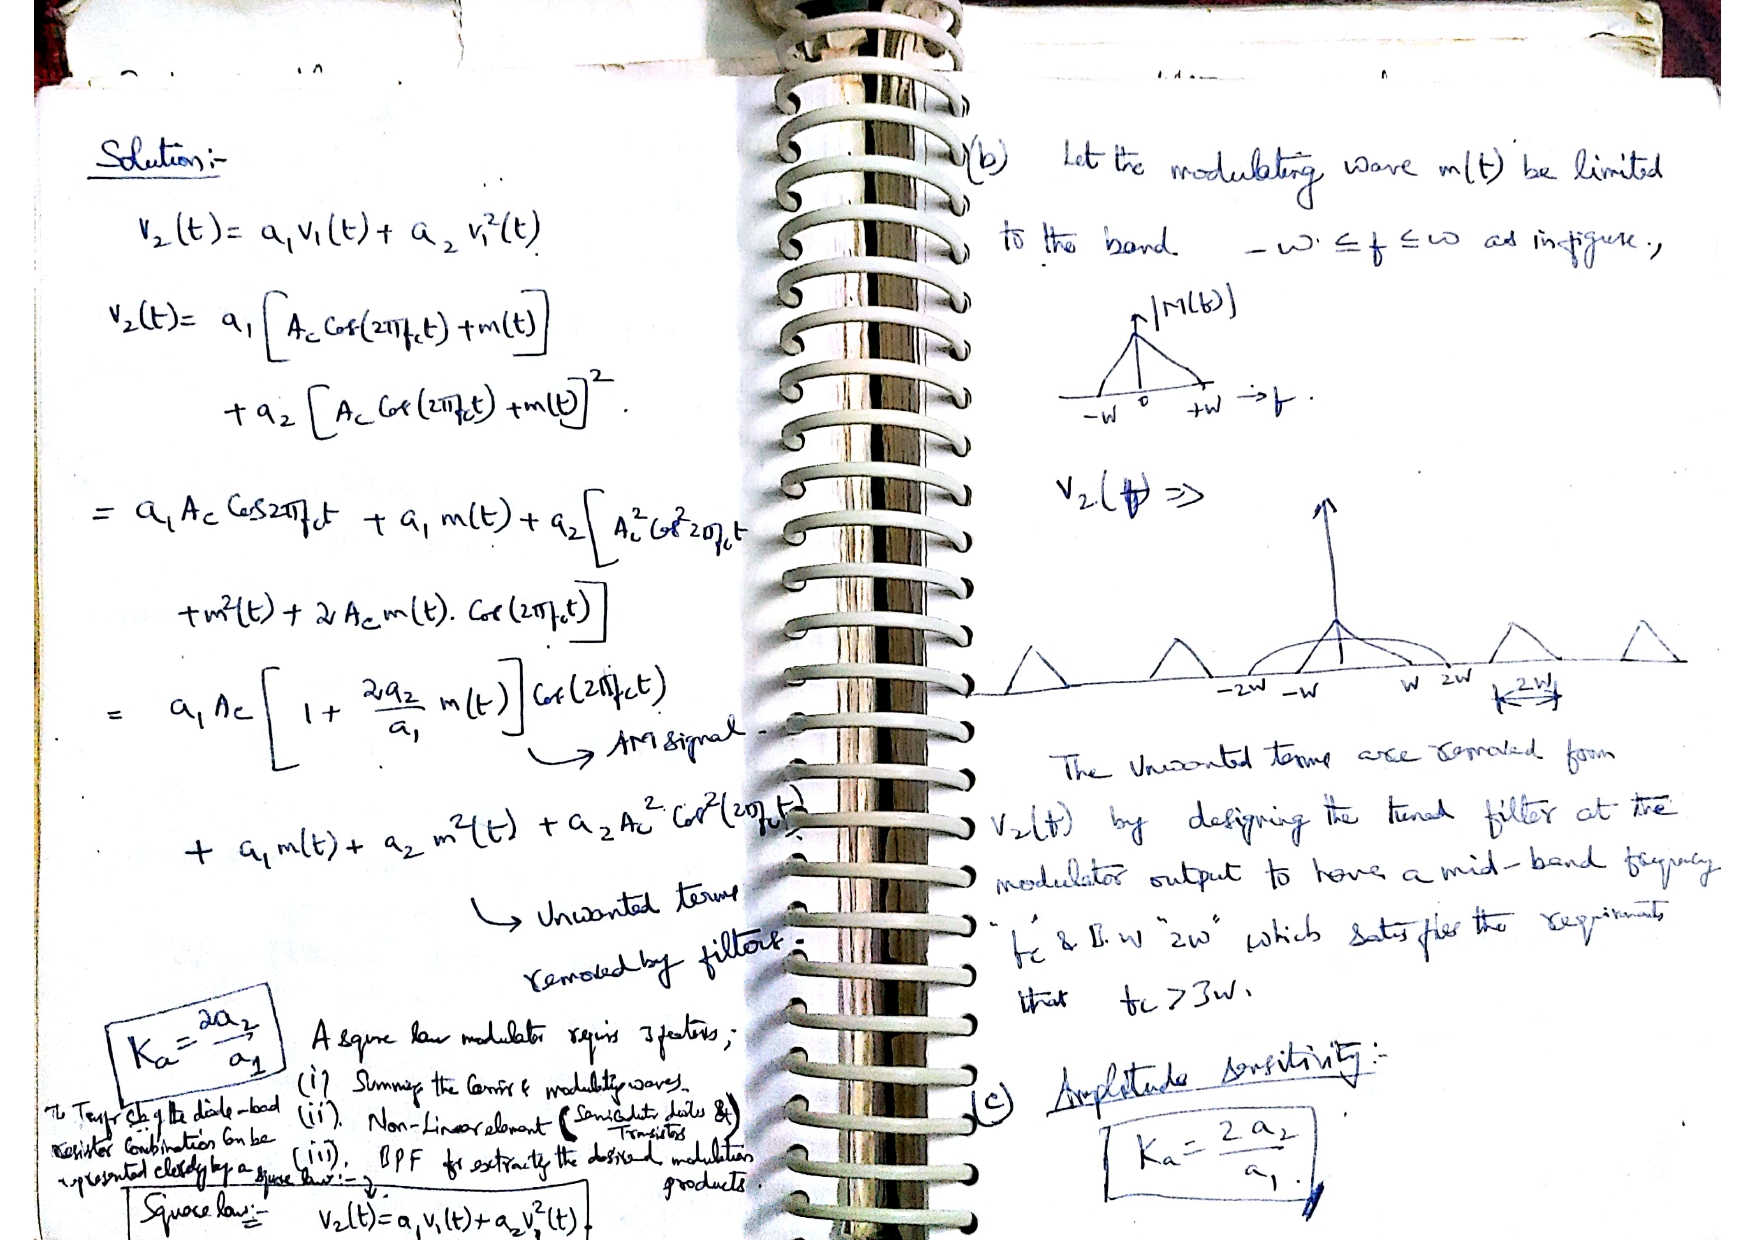 Solution:-
V₂(t) = a₁V₁(t) + a₂ V₁²(t)
V₂(t) = a₁ [A_c Cos(2πf_ct) + m(t)]
+ a₂ [A_c Cos(2πf_ct) + m(t)]².
= a₁ A_c Cos2πf_ct + a₁ m(t) + a₂ [A_c² Cos² 2πf_ct
+ m²(t) + 2 A_c m(t). Cos(2πf_ct)]
= a₁ A_c [1 + 2a₂/a₁ m(t)] Cos(2πf_ct)
→ AM signal.
+ a₁ m(t) + a₂ m²(t) + a₂ A_c² Cos²(2πf_ct)
→ Unwanted terms
removed by filters.
Ka = 2a₂/a₁
A squre law modulator requirs 3 features;
(i) Summing the Carrier & modulating waves.
(ii). Non-Linear element (Semiconductor diodes & Transistors)
(iii). BPF for extracting the desired modulation
products.
The Transfr ch of the diode-load
resistor Combination Can be
represented closely by a squre law:-
Square law:- V₂(t) = a₁V₁(t) + a₂V₁²(t).
(b) Let the modulating wave m(t) be limited
to the band -w ≤ f ≤ w as in figure.,
|M(f)|
-W 0 +W → f.
V₂(f) ⇒
-2W -W W 2W 2W
The Unwanted terms are removed from
V₂(t) by designing the tuned filter at the
modulator output to have a mid-band frequency
"fc" & B.W "2W" which satisfies the requirments
that fc > 3W.
(c) Amplitude sensitivity:-
Ka = 2a₂/a₁.